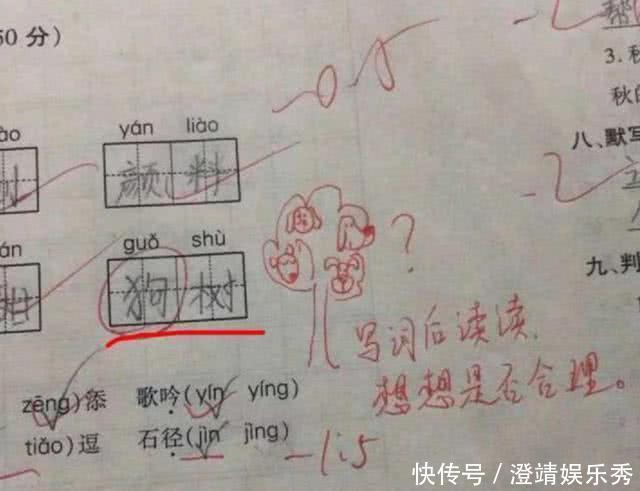 50 分)
yán liào
颜料
guǒ shù
狗树
?
写词后读读、
想想是否合理。
zēng)添 歌吟(yín yíng)
tiǎo)逗 石径(jìn jìng)
-1.5
3. 秋
秋的
八、默写
九、判
快传号/澄靖娱乐秀